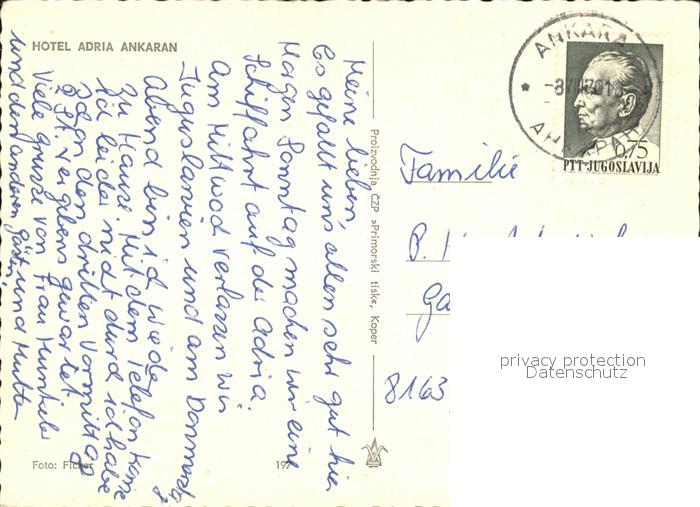 HOTEL ADRIA ANKARAN
Meine lieben,
Es gefällt uns allen sehr gut hier
Morgen Sonntag machen wir eine
Schiffahrt auf der Adria.
Am Mittwoch verlassen wir
Jugoslavien und am Donnerstag
Abend bin ich wieder
zu Hause. Mit dem Telefon komme
ich leider nicht durch ich habe
schon den dritten Vormittag
2 St. vergebens gewartet.
Viele Grüsse von Frau
und den anderen Gästen und Mutter
Foto: Ficker
197
Proizvodnja ČZP »Primorski tisk«, Koper
ANKARAN
0,75
PTT-JUGOSLAVIJA
Familie
B.
Ga
8163
privacy protection
Datenschutz